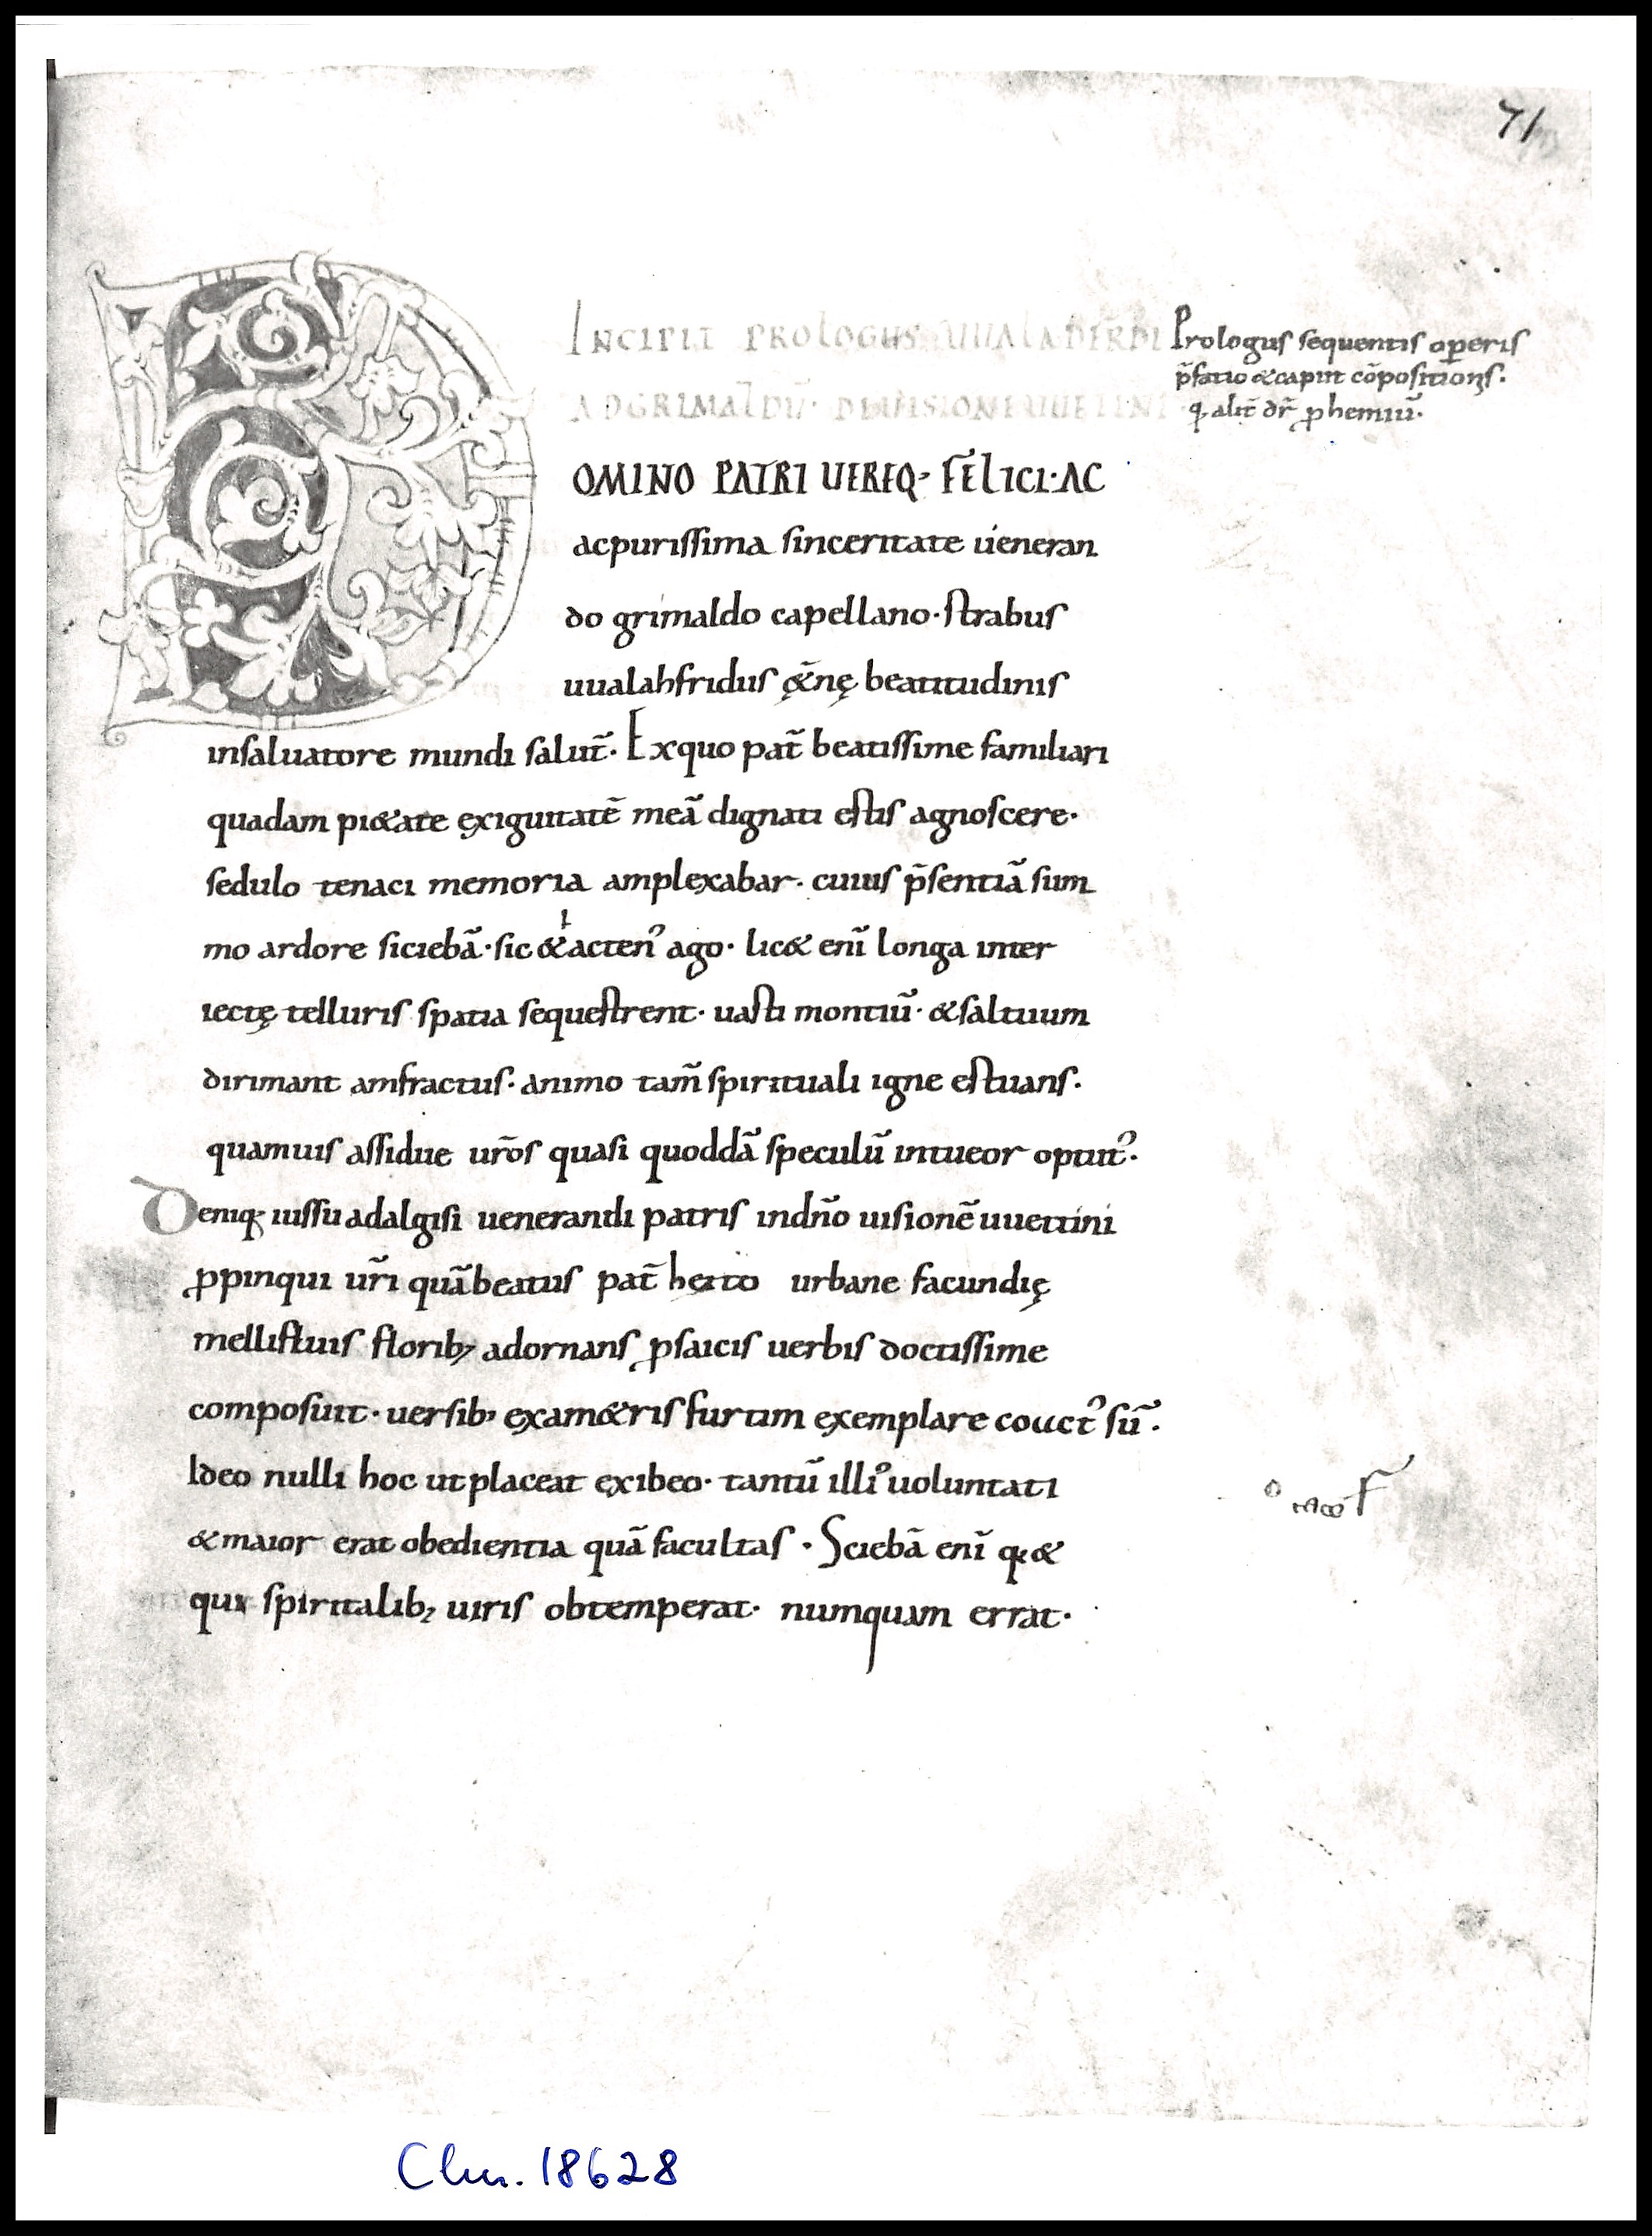 71
INCIPIT PROLOGUS UUALADFRDI
AD GRIMALDŪ· DE UISIONE UUETTINI
Prologus sequentis operis
p̄fatio & capitt cōpositionis·
q· alit̄ dr̄ ꝓhemiū·
DOMINO PATRI UEREQ· FELICI· AC
acpurissima sinceritate ueneran
do grimaldo capellano· strabus
uualahfridus &̨̄nę beatitudinis
insaluatore mundi salut̄· Exquo pat̄ beatissime familiari
quadam pi&ate exiguitatē meā dignati estis agnoscere·
sedulo tenaci memoria amplexabar· cuius p̄sentiā sum
mo ardore siciebā· sic & acten᾽ ago· lic& enī longa inter
iectę telluris spatia sequestrent· uasti montiū· & saltuum
dirimant amfractus· animo tam̄ spirituali igne estuans·
quamuis assidue ur̄os quasi quoddā speculū intueor optut᾽·
Deniq· iussu adalgisi uenerandi patris indn̄o uisionē uuettini
ꝓpinqui ur̄i quā beatus pat̄ heito urbane facundię
mellifluis florib; adornans ꝓsaicis uerbis doctissime
composuit· uersib; exam&ris furtim exemplare couct᾽ sū·
Ideo nulli hoc ut placeat exibeo· tantū illi᾽ uoluntati
& maior erat obedientia quā facultas· Sciebā enī q· &
qui spiritalib; uiris obtemperat· numquam errat·
Clm. 18628